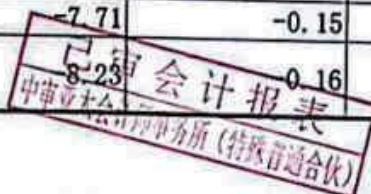 -7.71 -0.15
-8.23 -0.16
已审会计报表
中审亚太会计师事务所(特殊普通合伙)